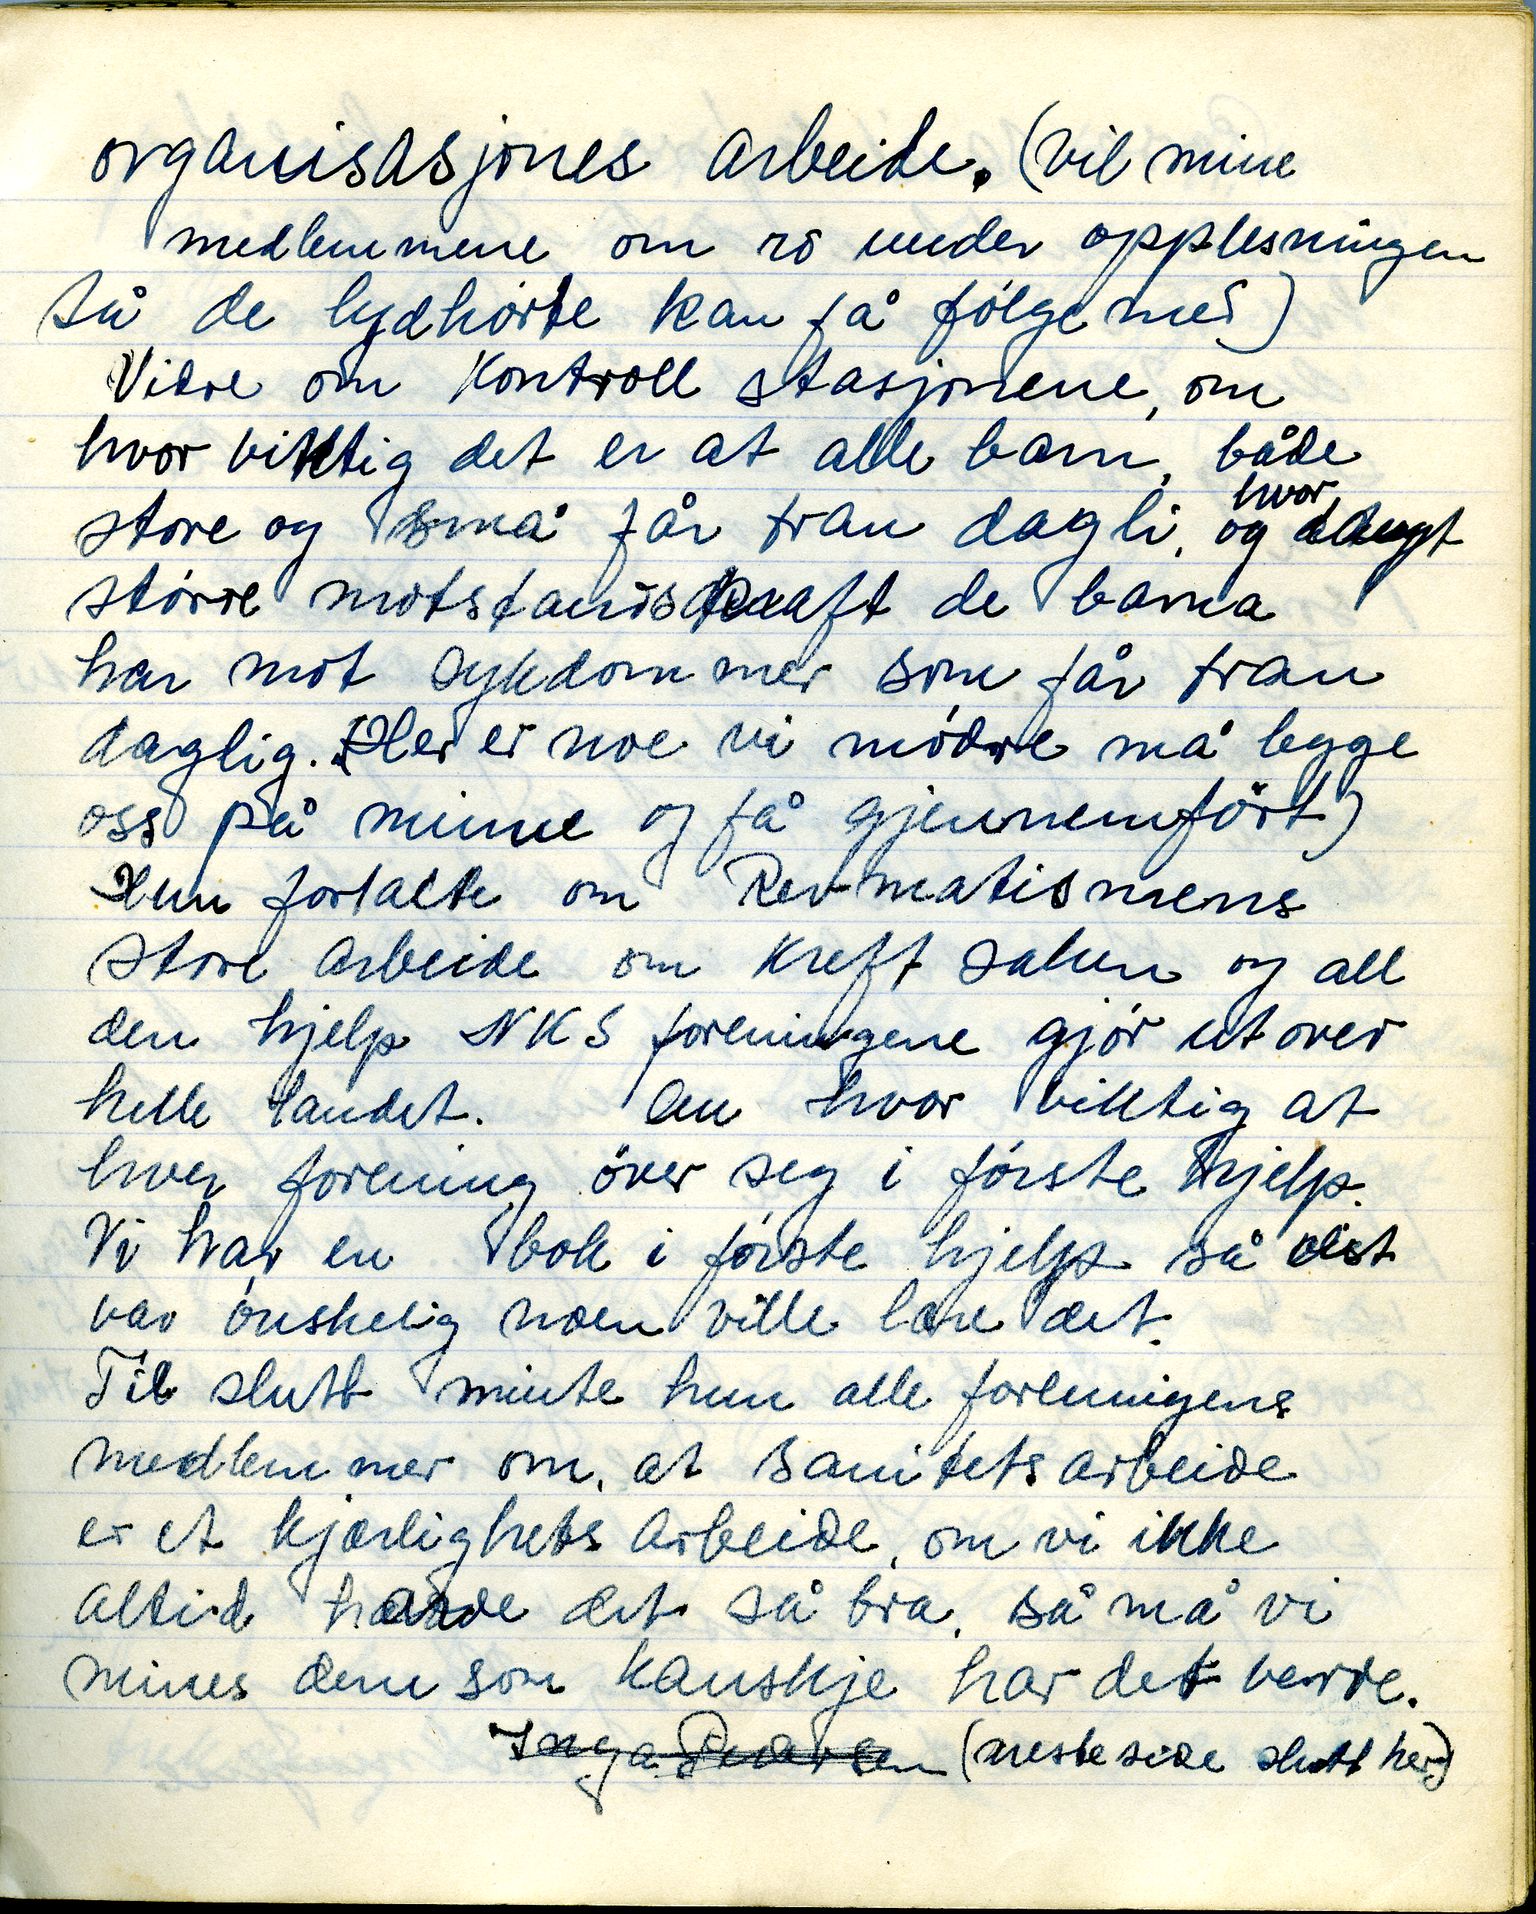 organisasjones arbeide. (vil mine
medlemmene om ro under opplesningen
så de lydhørte kan få følge med)
Vidre om Kontroll stasjonene, om
hvor viktig det er at alle barn, både
store og små får tran dagli, og hvor
større motstandskraft de barna
har mot sykdommer som får tran
daglig. (Her er noe vi mødre må legge
oss på minne og få gjennemført)
Hun fortalte om Revmatismens
store arbeide om kreft saken og all
den hjelp NKS foreningene gjør utover
helle landet. Om hvor viktig at
hver forening øver seg i første hjelp.
Vi har en bok i første hjelp så det
var ønskelig noen ville lære det.
Til slutt minte hun alle foreningens
medlemmer om, at sanitets arbeide
er et kjærlighets arbeide, om vi ikke
altid hadde det så bra, så må vi
mines dem som kanskje har det verre.
Inga Pedersen (neste side slutt her)